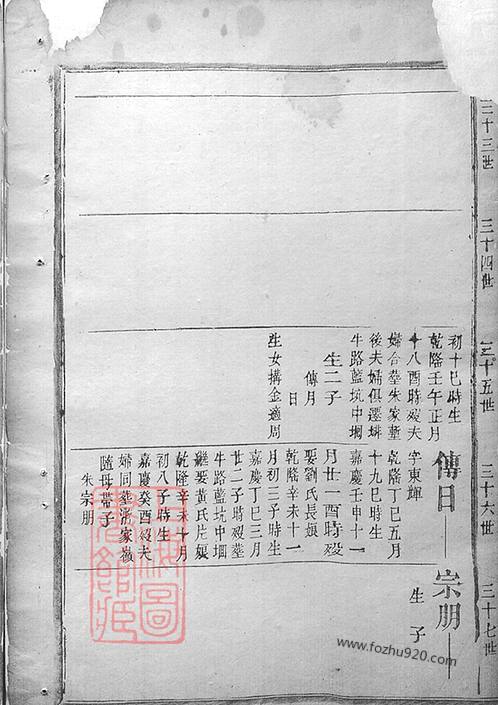 三十三世
三十四世
三十五世
三十六世
三十七世
初十巳時生
乾隆壬午正月
十八酉時歿夫
婦合塟朱家蕫
後夫婦俱遷塟
牛路藍坑中堈
生二子
傳月
日
生女搆金適周
傳日
宗朋
字東輝
乾隆丁巳五月
十九巳時生
嘉慶壬申十一
月廿一酉時歿
娶劉氏長娘
乾隆辛未十一
月初三子時生
嘉慶丁巳三月
廿二子時歿塟
牛路藍坑中堈
繼娶黃氏
乾隆辛未十月
初八子時生
嘉慶癸酉歿夫
婦同塟
隨母帶子
朱宗朋
生 子
www.fozhu920.com